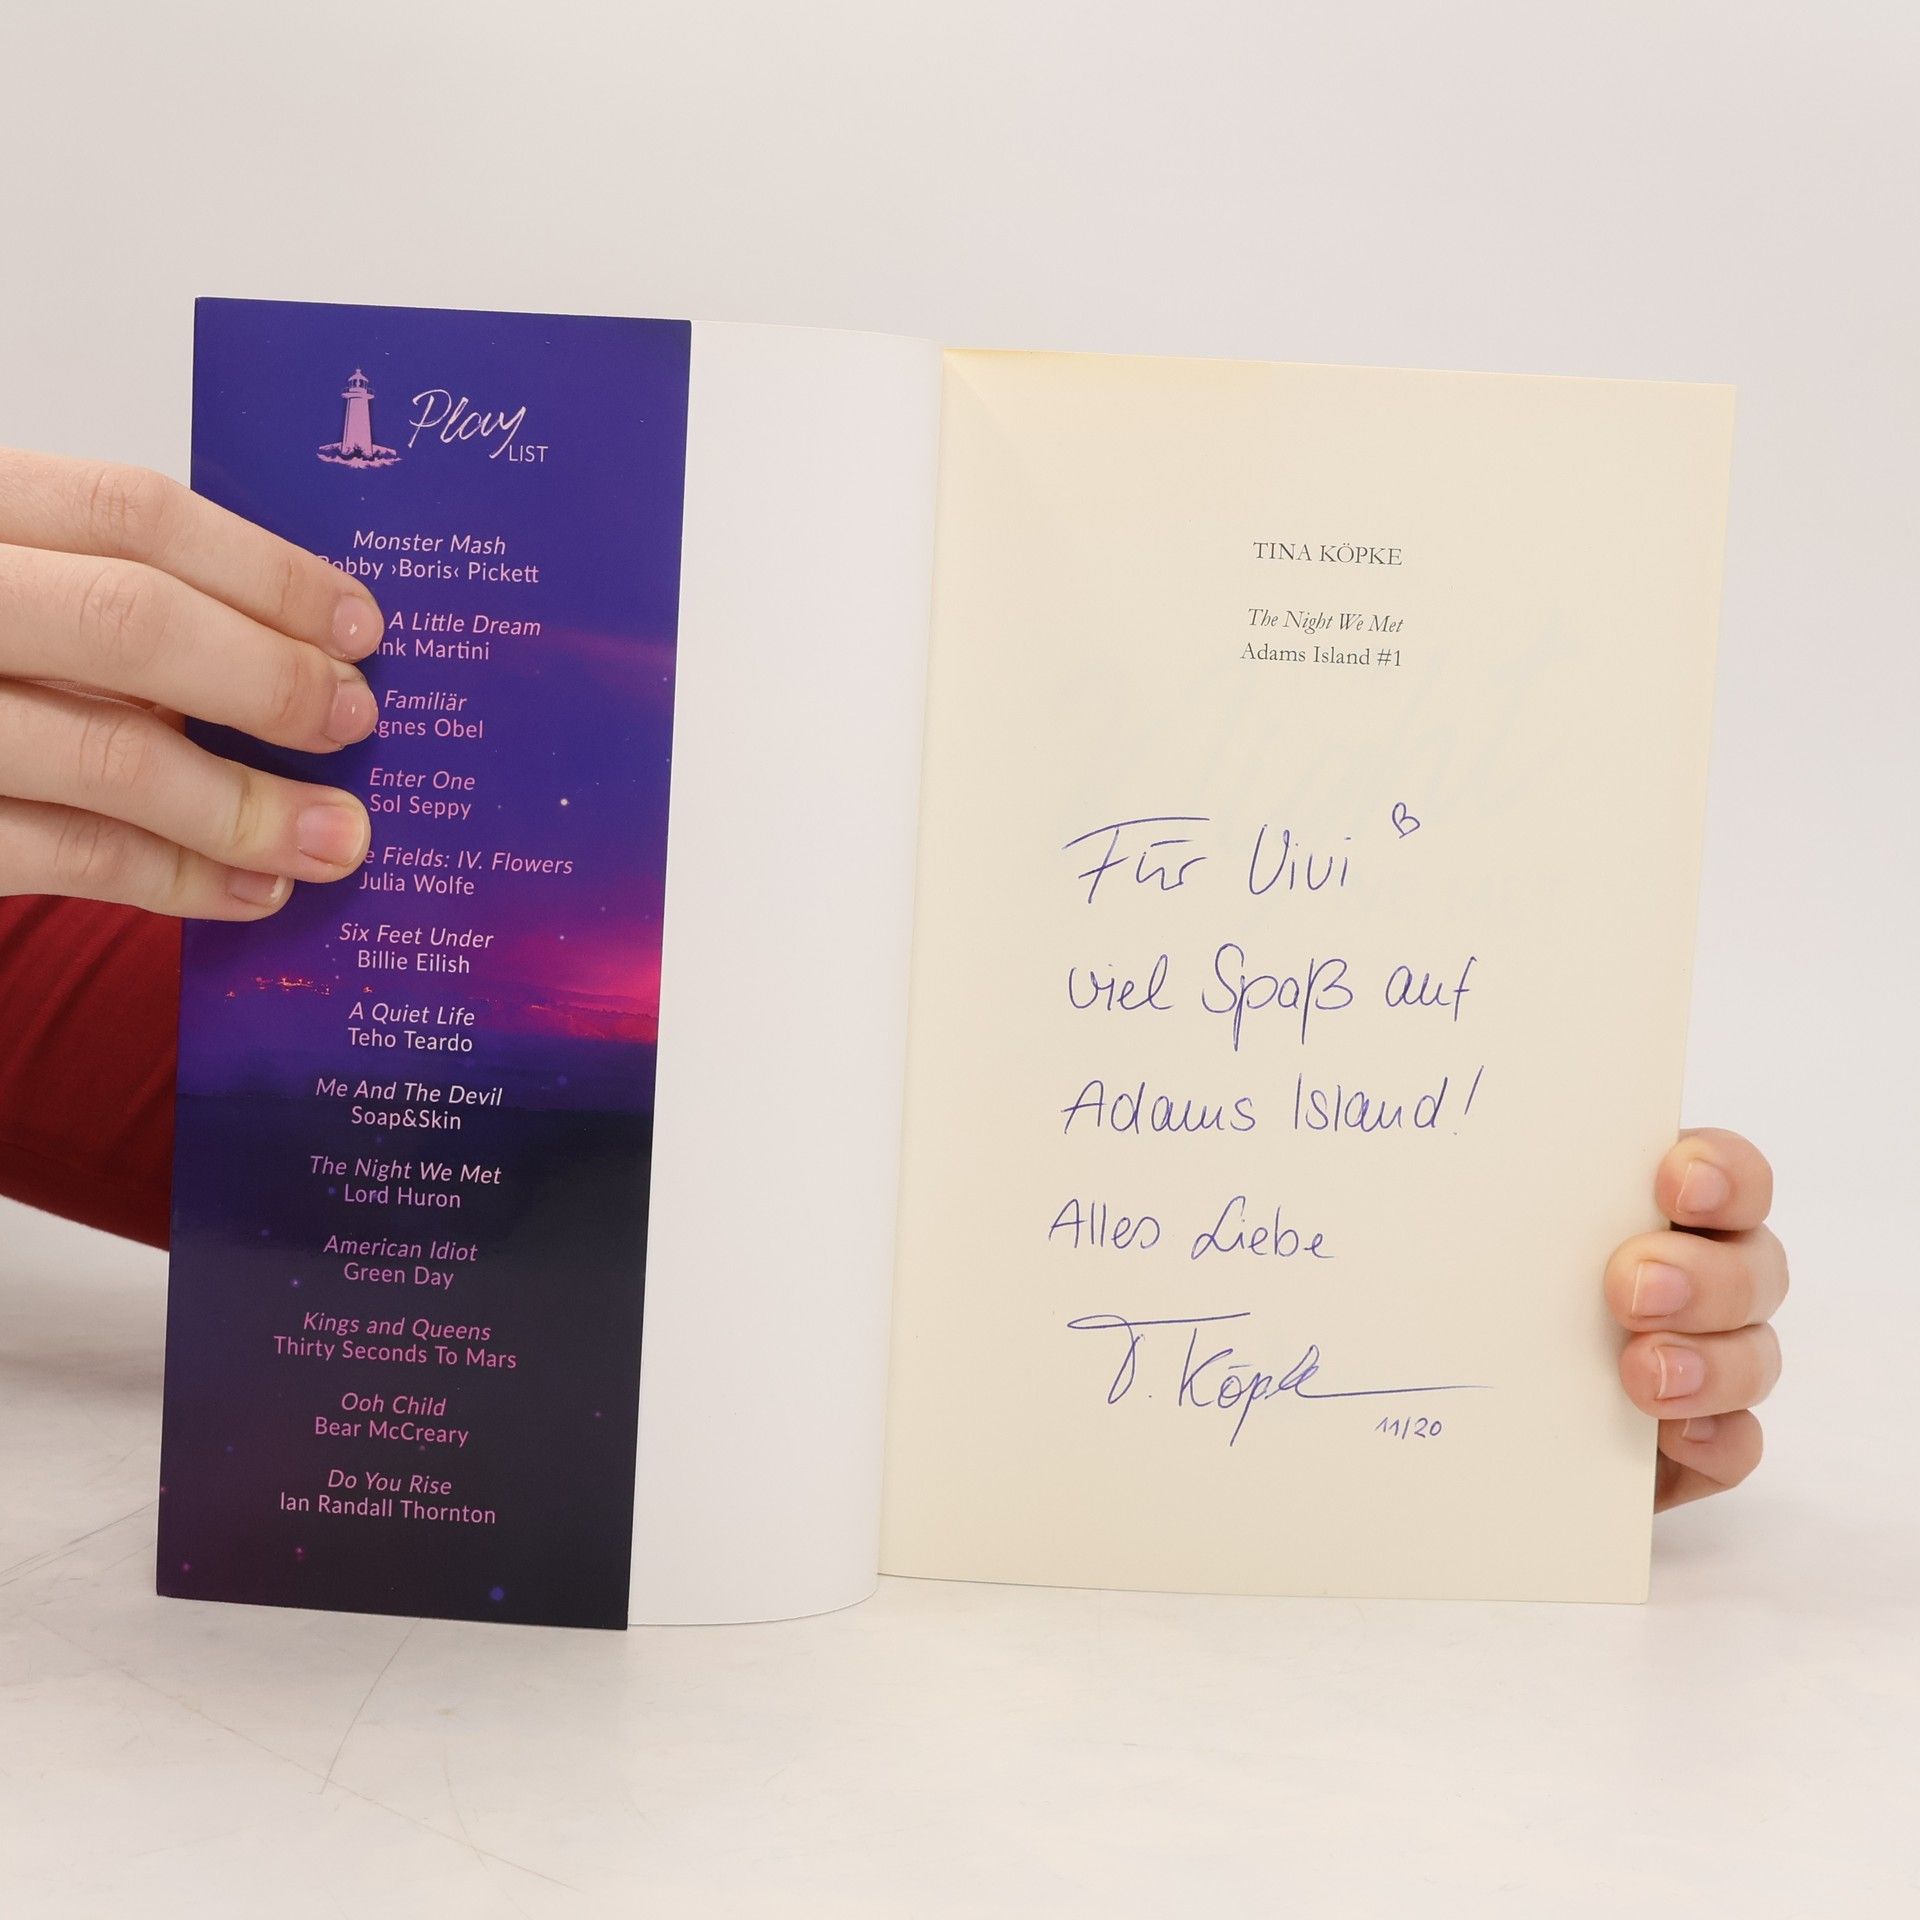 Play
LIST
Monster Mash
obby ›Boris‹ Pickett
A Little Dream
ink Martini
Familiär
gnes Obel
Enter One
Sol Seppy
e Fields: IV. Flowers
Julia Wolfe
Six Feet Under
Billie Eilish
A Quiet Life
Teho Teardo
Me And The Devil
Soap&Skin
The Night We Met
Lord Huron
American Idiot
Green Day
Kings and Queens
Thirty Seconds To Mars
Ooh Child
Bear McCreary
Do You Rise
Ian Randall Thornton
TINA KÖPKE
The Night We Met
Adams Island #1
Für Vivi
viel Spaß auf
Adams Island!
Alles Liebe
T. Köpke
11/20